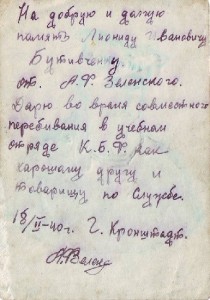 На добрую и долгую
память Леониду Ивановичу
Бутивченку.
от. А.Ф. Зеленского.
Дарю во время совместного
перебивания в учебном
отряде К.Б.Ф. как
харошому другу и
товарищу по Службе.
18/II-40г. Г. Кронштадт.
АЗелен